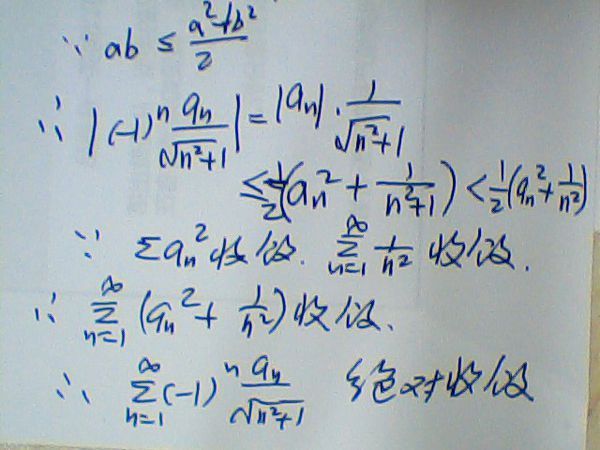 ∵ ab ≤ (a²+b²)/2
∴ |(-1)ⁿ aₙ/√(n²+1)| = |aₙ| · 1/√(n²+1)
≤ 1/2(aₙ² + 1/(n²+1)) < 1/2(aₙ² + 1/n²)
∵ Σaₙ² 收敛. ∑_{n=1}^{∞} 1/n² 收敛.
∴ ∑_{n=1}^{∞} (aₙ² + 1/n²) 收敛.
∴ ∑_{n=1}^{∞} (-1)ⁿ aₙ/√(n²+1) 绝对收敛